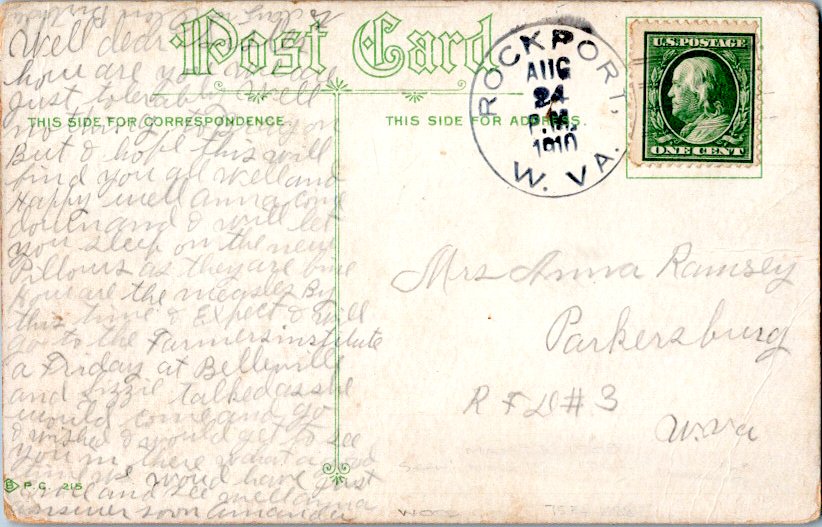 Post Card
THIS SIDE FOR CORRESPONDENCE.
THIS SIDE FOR ADDRESS.
ROCKPORT,
AUG
24
P.M.
1910
W. VA.
U.S. POSTAGE
ONE CENT
Well dear
how are you we are
just tolerable well
But I hope this will
find you all well and
Happy well anna come
down and I will let
you sleep on the new
Pillows as they are fine
how are the measles By
this time I Expect I will
go to the Farmers institute
a Friday at Belleville
and Lizzie talked as she
would come and go
I wished I would get to see
you in there what a good
time we would have just
come and see well
answer soon amanda
Mrs Anna Ramsey
Parkersburg
R F D # 3
W. Va
P.C. 215